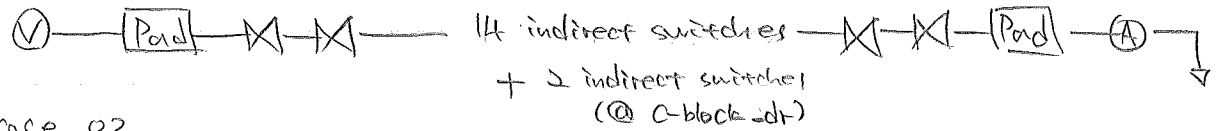 V Pad 14 indirect switches Pad A
+ 2 indirect switches
(@ C-block-dr)